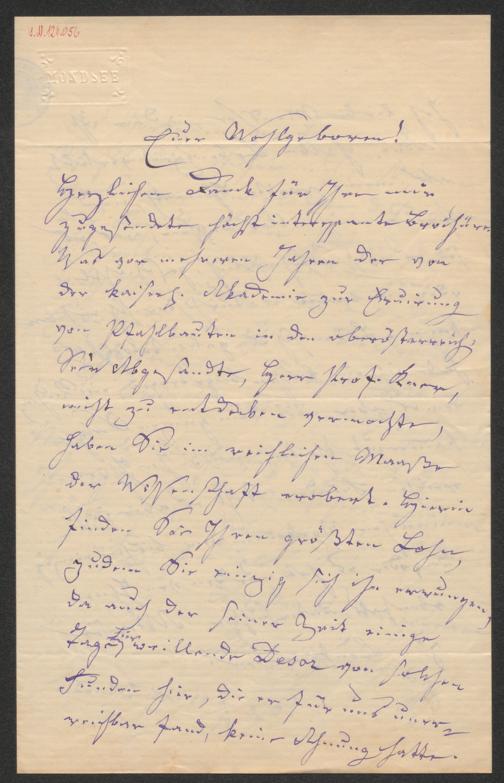 I.N. 124.056
MONDSEE
Euer Wohlgeboren!
Herzlichen Dank für Ihre mir
zugesendete höchst interessante Brochüre.
Was vor mehreren Jahren der von
der kaiserl. Akademie zur Eruirung
von Pfahlbauten in den oberösterreich.
Seen Abgesandte, Herr Prof.
nicht zu entdecken vermochte,
haben Sie im reichlichen Maaße
der Wissenschaft erobert. Hierin
finden Sie Ihren größten Lohn,
zudem Sie einzig sich ihn errungen,
da auch der seiner Zeit einige
Tage hier weillende Desor von solchen
Funden hier, die er für uns uner=
reichbar fand, keine Ahnung hatte.